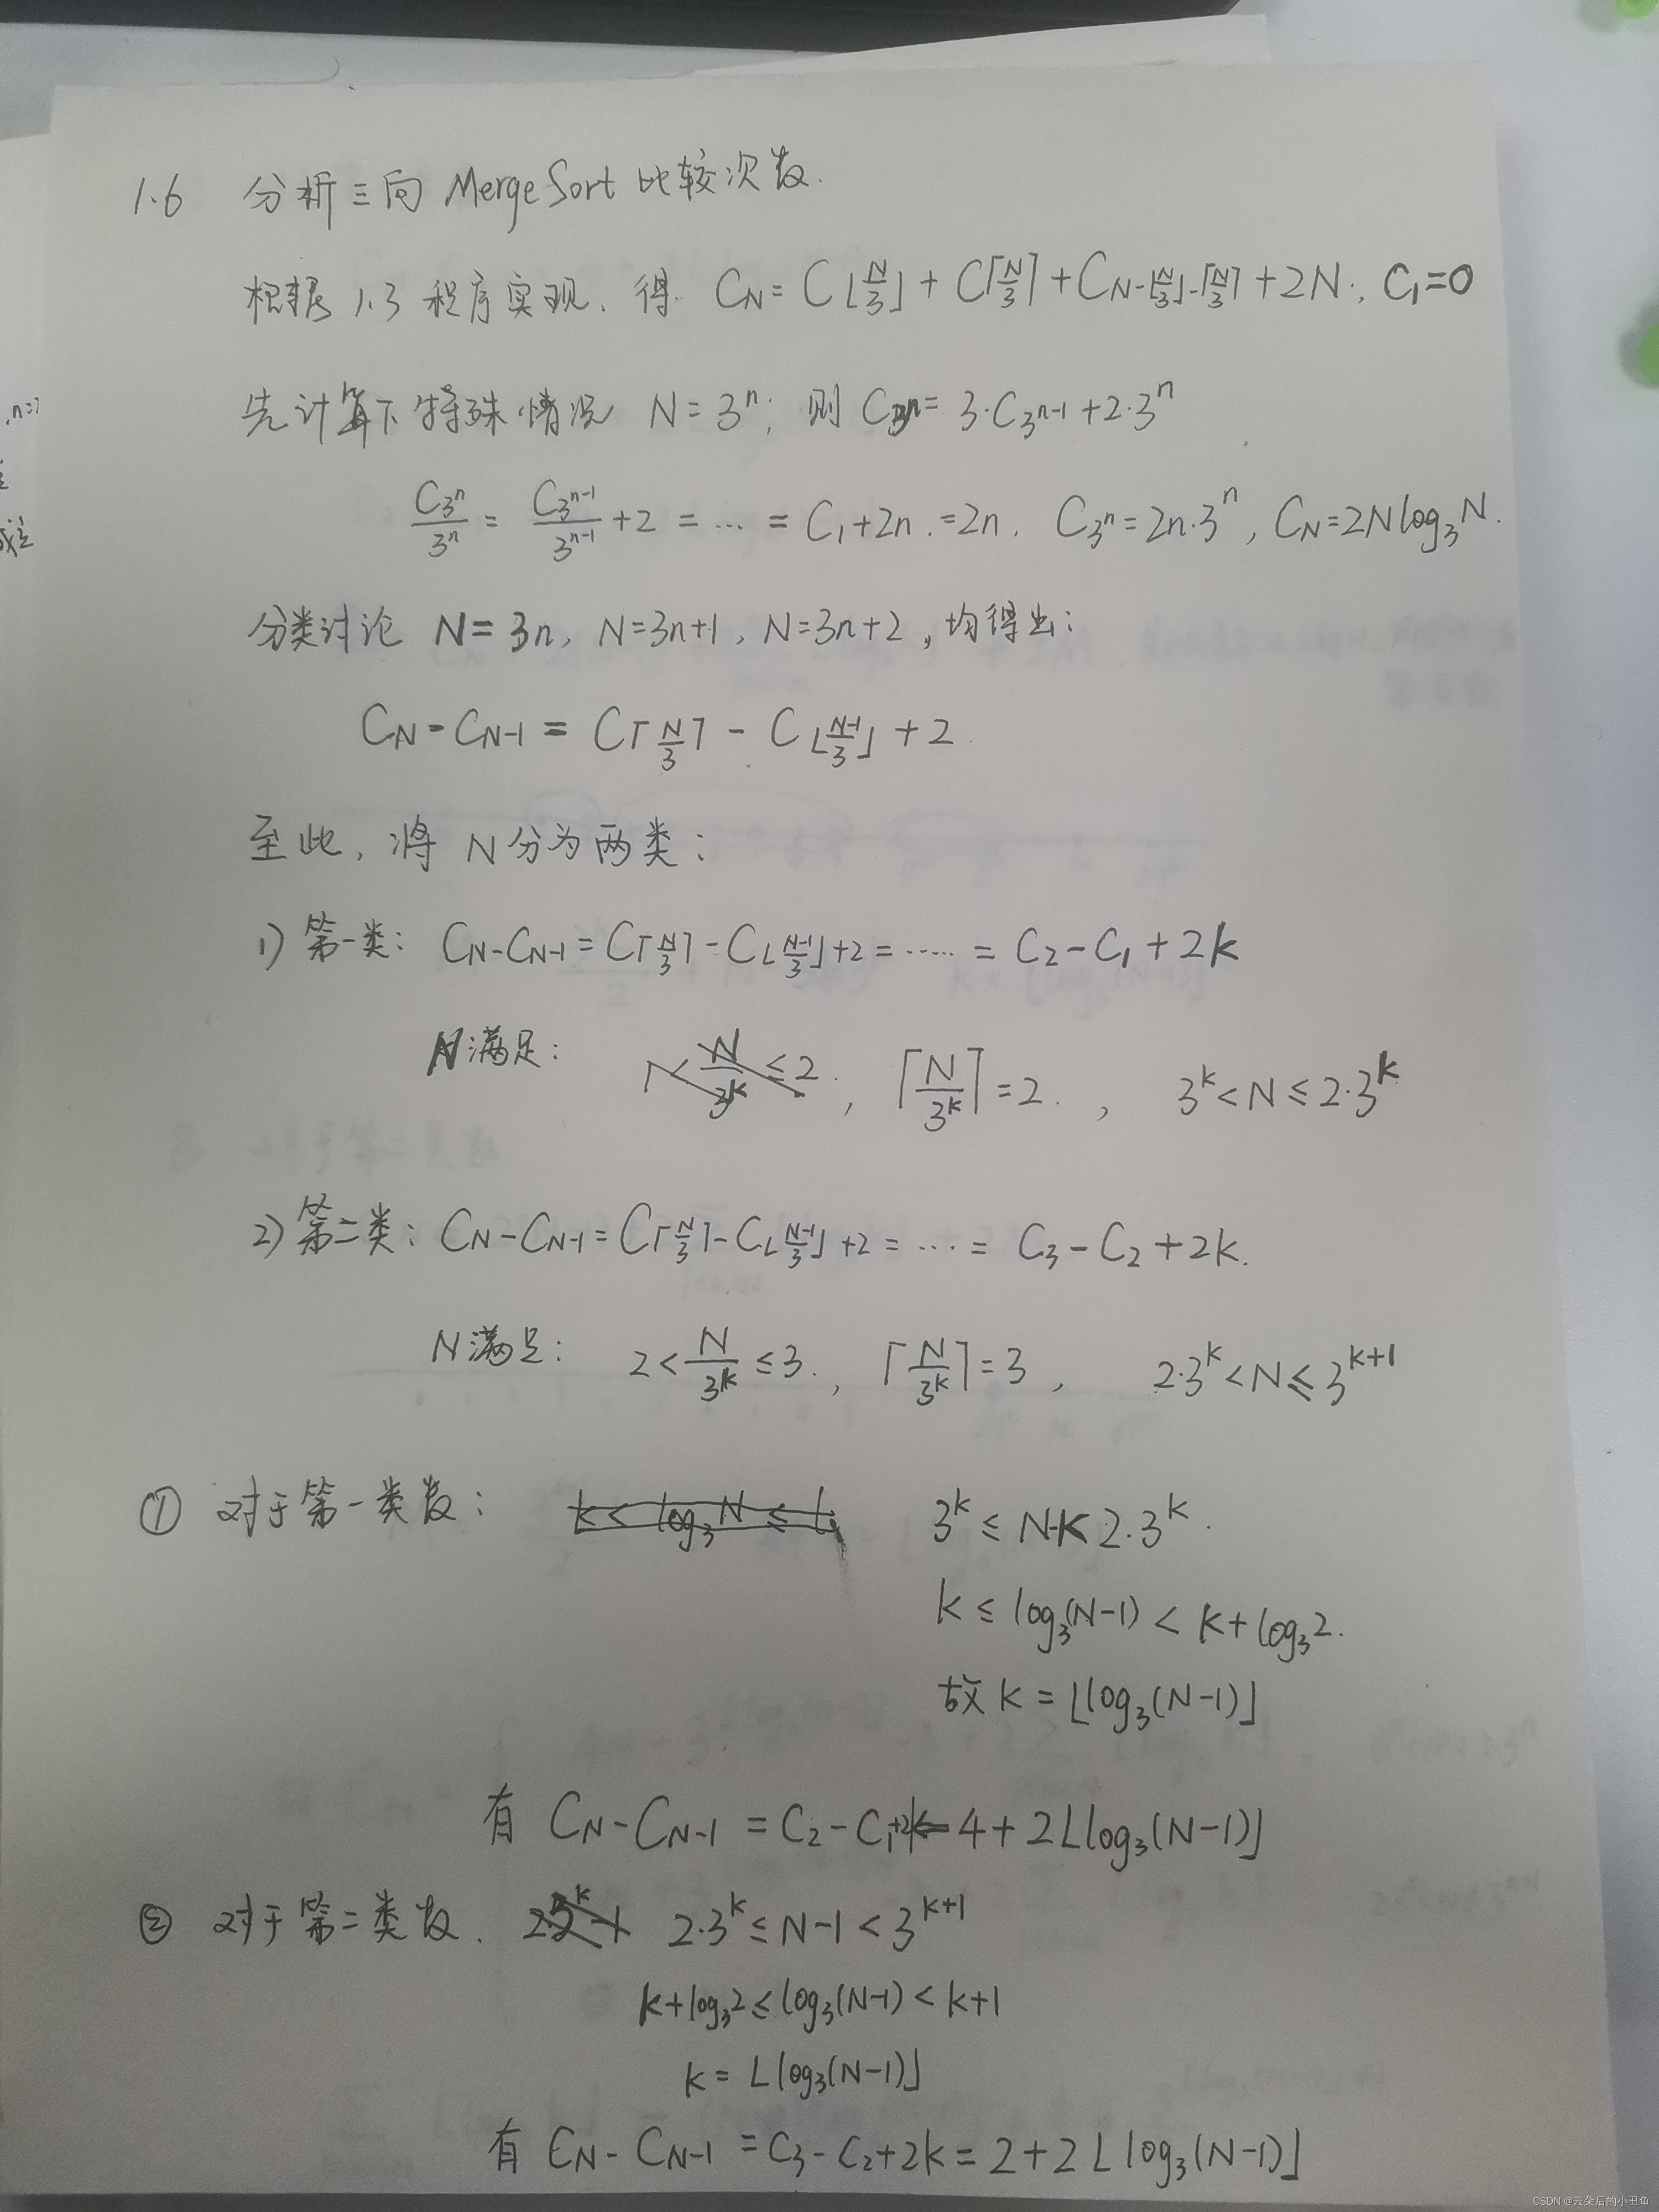 1.6 分析三向 MergeSort 比较次数.
根据 1.3 程序实现, 得 C_N = C_⌊N/3⌋ + C_⌈N/3⌉ + C_{N-⌊N/3⌋-⌈N/3⌉} + 2N., C_1=0
先计算下特殊情况 N = 3^n; 则 C_{3^n} = 3·C_{3^{n-1}} + 2·3^n
C_{3^n}/3^n = C_{3^{n-1}}/3^{n-1} + 2 = … = C_1 + 2n. = 2n. C_{3^n} = 2n·3^n, C_N = 2N log_3 N.
分类讨论 N = 3n, N = 3n+1, N = 3n+2, 均得出:
C_N - C_{N-1} = C_⌈N/3⌉ - C_⌊(N-1)/3⌋ + 2
至此, 将 N 分为两类:
1) 第一类: C_N - C_{N-1} = C_⌈N/3⌉ - C_⌊(N-1)/3⌋ + 2 = …… = C_2 - C_1 + 2k
N满足: 1 < N/3^k ≤ 2, ⌈N/3^k⌉ = 2. , 3^k < N ≤ 2·3^k
2) 第二类: C_N - C_{N-1} = C_⌈N/3⌉ - C_⌊(N-1)/3⌋ + 2 = … = C_3 - C_2 + 2k.
N满足: 2 < N/3^k ≤ 3., ⌈N/3^k⌉ = 3, 2·3^k < N ≤ 3^{k+1}
① 对于第一类数: k < log_3 N ≤ 3^k ≤ N-1< 2·3^k.
k ≤ log_3(N-1) < k + log_3 2.
故 k = ⌊log_3(N-1)⌋
有 C_N - C_{N-1} = C_2 - C_1 +2k = 4 + 2⌊log_3(N-1)⌋
② 对于第二类数. 2·3^k ≤ N-1 < 3^{k+1}
k + log_3 2 ≤ log_3(N-1) < k+1
k = ⌊log_3(N-1)⌋
有 C_N - C_{N-1} = C_3 - C_2 + 2k = 2 + 2⌊log_3(N-1)⌋
CSDN @云朵后的小丑鱼